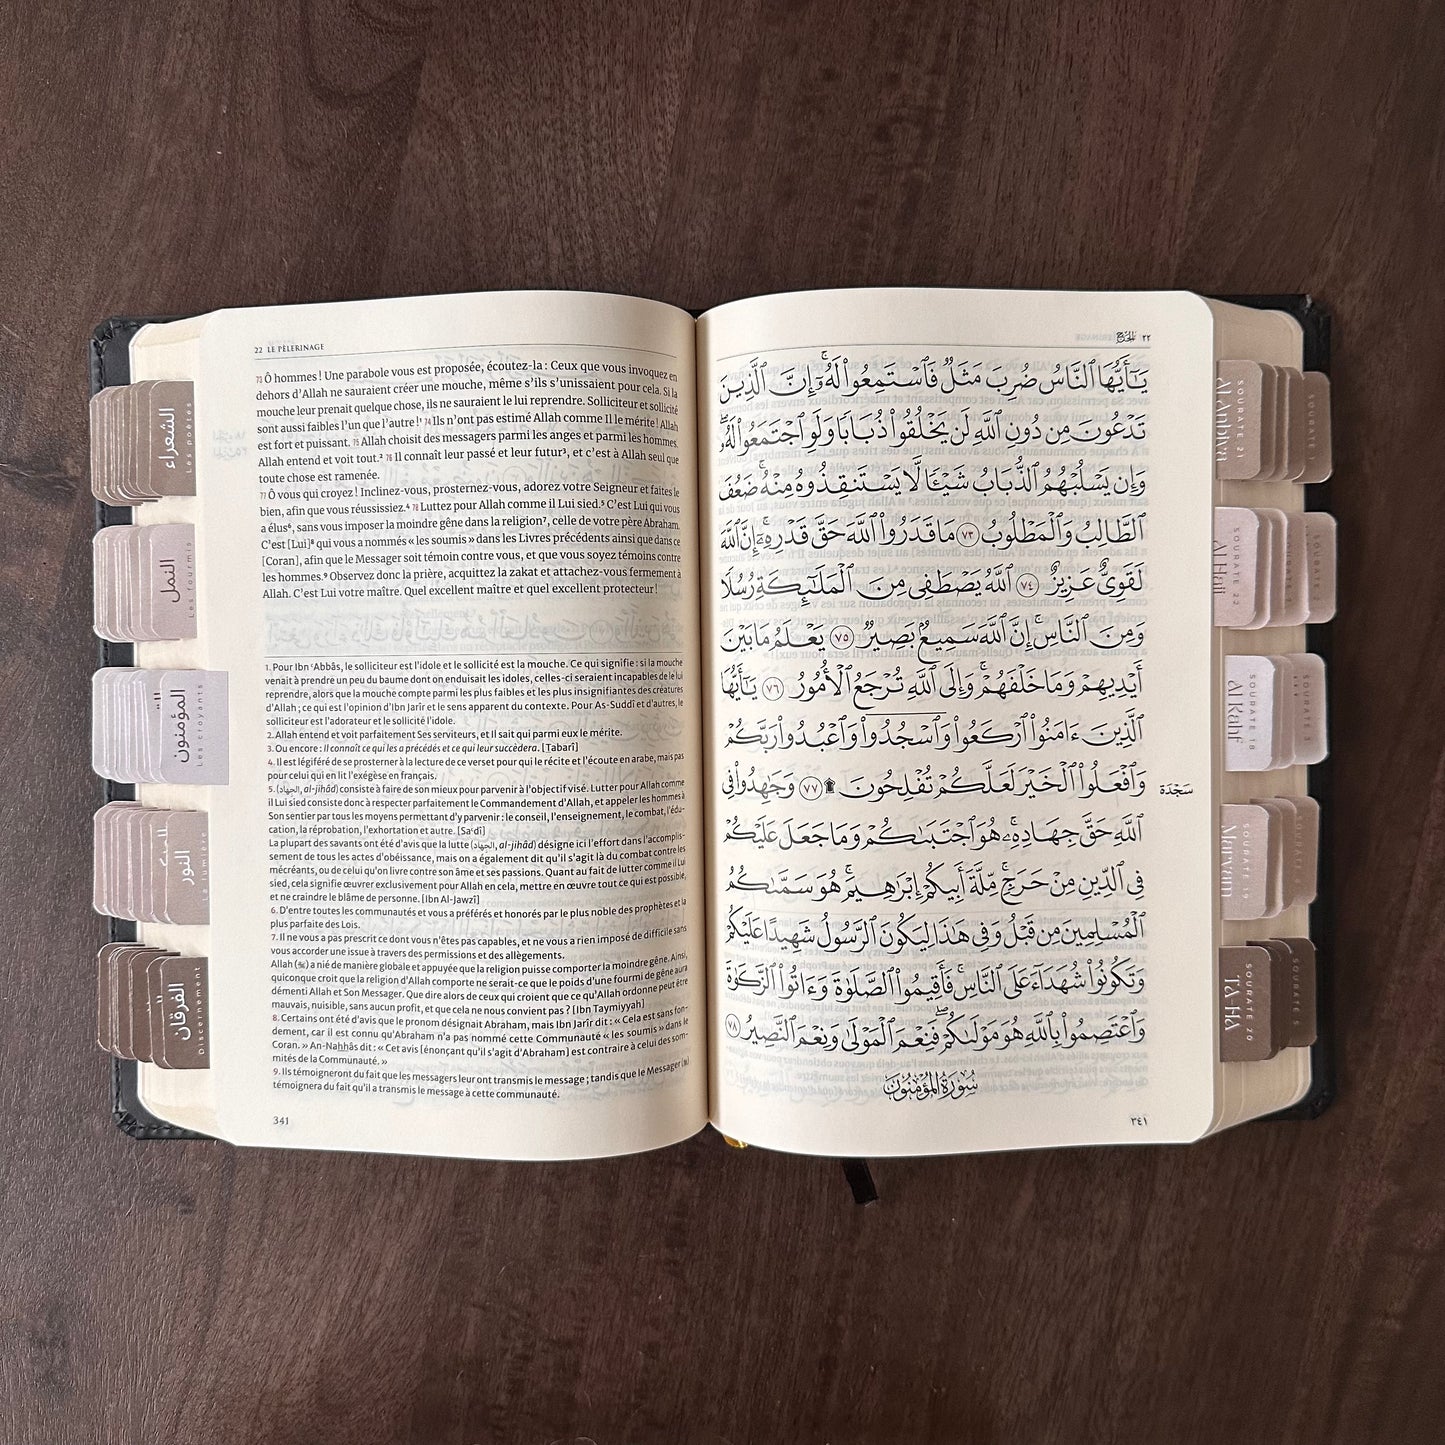 22 LE PÈLERINAGE
73 Ô hommes ! Une parabole vous est proposée, écoutez-la : Ceux que vous invoquez en
dehors d'Allah ne sauraient créer une mouche, même s'ils s'unissaient pour cela. Si la
mouche leur prenait quelque chose, ils ne sauraient le lui reprendre. Solliciteur et sollicité
sont aussi faibles l'un que l'autre !¹ 74 Ils n'ont pas estimé Allah comme Il le mérite ! Allah
est fort et puissant. 75 Allah choisit des messagers parmi les anges et parmi les hommes.
Allah entend et voit tout.² 76 Il connaît leur passé et leur futur³, et c'est à Allah seul que
toute chose est ramenée.
77 Ô vous qui croyez ! Inclinez-vous, prosternez-vous, adorez votre Seigneur et faites le
bien, afin que vous réussissiez.⁴ 78 Luttez pour Allah comme il Lui sied.⁵ C'est Lui qui vous
a élus⁶, sans vous imposer la moindre gêne dans la religion⁷, celle de votre père Abraham.
C'est [Lui]⁸ qui vous a nommés « les soumis » dans les Livres précédents ainsi que dans ce
[Coran], afin que le Messager soit témoin contre vous, et que vous soyez témoins contre
les hommes.⁹ Observez donc la prière, acquittez la zakat et attachez-vous fermement à
Allah. C'est Lui votre maître. Quel excellent maître et quel excellent protecteur !
1. Pour Ibn 'Abbâs, le solliciteur est l'idole et le sollicité est la mouche. Ce qui signifie : si la mouche
venait à prendre un peu du baume dont on enduisait les idoles, celles-ci seraient incapables de le lui
reprendre, alors que la mouche compte parmi les plus faibles et les plus insignifiantes des créatures
d'Allah ; ce qui est l'opinion d'Ibn Jarîr et le sens apparent du contexte. Pour As-Suddî et d'autres, le
solliciteur est l'adorateur et le sollicité l'idole.
2. Allah entend et voit parfaitement Ses serviteurs, et Il sait qui parmi eux le mérite.
3. Ou encore : Il connaît ce qui les a précédés et ce qui leur succèdera. [Tabarî]
4. Il est légiféré de se prosterner à la lecture de ce verset pour qui le récite et l'écoute en arabe, mais pas
pour celui qui en lit l'exégèse en français.
5. (الجهاد, al-jihâd) consiste à faire de son mieux pour parvenir à l'objectif visé. Lutter pour Allah comme
il Lui sied consiste donc à respecter parfaitement le Commandement d'Allah, et appeler les hommes à
Son sentier par tous les moyens permettant d'y parvenir : le conseil, l'enseignement, le combat, l'édu-
cation, la réprobation, l'exhortation et autre. [Sa'dî]
La plupart des savants ont été d'avis que la lutte (الجهاد, al-jihâd) désigne ici l'effort dans l'accomplis-
sement de tous les actes d'obéissance, mais on a également dit qu'il s'agit là du combat contre les
mécréants, ou de celui qu'on livre contre son âme et ses passions. Quant au fait de lutter comme il Lui
sied, cela signifie œuvrer exclusivement pour Allah en cela, mettre en œuvre tout ce qui est possible,
et ne craindre le blâme de personne. [Ibn Al-Jawzî]
6. D'entre toutes les communautés et vous a préférés et honorés par le plus noble des prophètes et la
plus parfaite des Lois.
7. Il ne vous a pas prescrit ce dont vous n'êtes pas capables, et ne vous a rien imposé de difficile sans
vous accorder une issue à travers des permissions et des allègements.
Allah (ﷻ) a nié de manière globale et appuyée que la religion puisse comporter la moindre gêne. Ainsi,
quiconque croit que la religion d'Allah comporte ne serait-ce que le poids d'une fourmi de gêne aura
démenti Allah et Son Messager. Que dire alors de ceux qui croient que ce qu'Allah ordonne peut être
mauvais, nuisible, sans aucun profit, et que cela ne nous convient pas ? [Ibn Taymiyyah]
8. Certains ont été d'avis que le pronom désignait Abraham, mais Ibn Jarîr dit : « Cela est sans fon-
dement, car il est connu qu'Abraham n'a pas nommé cette Communauté « les soumis » dans le
Coran. » An-Nahhâs dit : « Cet avis [énonçant qu'il s'agit d'Abraham] est contraire à celui des som-
mités de la Communauté. »
9. Ils témoigneront du fait que les messagers leur ont transmis le message ; tandis que le Messager (ﷺ)
témoignera du fait qu'il a transmis le message à cette communauté.
341
الحج ٢٢
يَـٰٓأَيُّهَا ٱلنَّاسُ ضُرِبَ مَثَلٌ فَٱسْتَمِعُوا۟ لَهُۥٓ ۚ إِنَّ ٱلَّذِينَ
تَدْعُونَ مِن دُونِ ٱللَّهِ لَن يَخْلُقُوا۟ ذُبَابًا وَلَوِ ٱجْتَمَعُوا۟ لَهُۥ ۖ
وَإِن يَسْلُبْهُمُ ٱلذُّبَابُ شَيْـًٔا لَّا يَسْتَنقِذُوهُ مِنْهُ ۚ ضَعُفَ
ٱلطَّالِبُ وَٱلْمَطْلُوبُ ٧٣ مَا قَدَرُوا۟ ٱللَّهَ حَقَّ قَدْرِهِۦٓ ۗ إِنَّ ٱللَّهَ
لَقَوِىٌّ عَزِيزٌ ٧٤ ٱللَّهُ يَصْطَفِى مِنَ ٱلْمَلَـٰٓئِكَةِ رُسُلًا
وَمِنَ ٱلنَّاسِ ۚ إِنَّ ٱللَّهَ سَمِيعٌۢ بَصِيرٌ ٧٥ يَعْلَمُ مَا بَيْنَ
أَيْدِيهِمْ وَمَا خَلْفَهُمْ ۗ وَإِلَى ٱللَّهِ تُرْجَعُ ٱلْأُمُورُ ٧٦ يَـٰٓأَيُّهَا
ٱلَّذِينَ ءَامَنُوا۟ ٱرْكَعُوا۟ وَٱسْجُدُوا۟ وَٱعْبُدُوا۟ رَبَّكُمْ
وَٱفْعَلُوا۟ ٱلْخَيْرَ لَعَلَّكُمْ تُفْلِحُونَ ۩ ٧٧ وَجَـٰهِدُوا۟ فِى
سَجْدَة
ٱللَّهِ حَقَّ جِهَادِهِۦ ۚ هُوَ ٱجْتَبَىٰكُمْ وَمَا جَعَلَ عَلَيْكُمْ
فِى ٱلدِّينِ مِنْ حَرَجٍ ۚ مِّلَّةَ أَبِيكُمْ إِبْرَٰهِيمَ ۚ هُوَ سَمَّىٰكُمُ
ٱلْمُسْلِمِينَ مِن قَبْلُ وَفِى هَـٰذَا لِيَكُونَ ٱلرَّسُولُ شَهِيدًا عَلَيْكُمْ
وَتَكُونُوا۟ شُهَدَآءَ عَلَى ٱلنَّاسِ ۚ فَأَقِيمُوا۟ ٱلصَّلَوٰةَ وَءَاتُوا۟ ٱلزَّكَوٰةَ
وَٱعْتَصِمُوا۟ بِٱللَّهِ هُوَ مَوْلَىٰكُمْ ۖ فَنِعْمَ ٱلْمَوْلَىٰ وَنِعْمَ ٱلنَّصِيرُ ٧٨
سُورَةُ المُؤْمِنُونَ
٣٤١
الشعراء
Les poètes
النمل
Les fourmis
المؤمنون
Les croyants
النور
La lumière
الفرقان
Discernement
SOURATE 21
Al Anbiya
SOURATE 22
Al Hajj
SOURATE 18
Al Kahf
SOURATE 19
Maryam
SOURATE 20
TA-HA
SOURATE 1
SOURATE 2
SOURATE 3
SOURATE
SOURATE 5